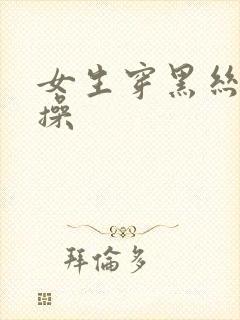 女生穿黑絲
操
拜倫多